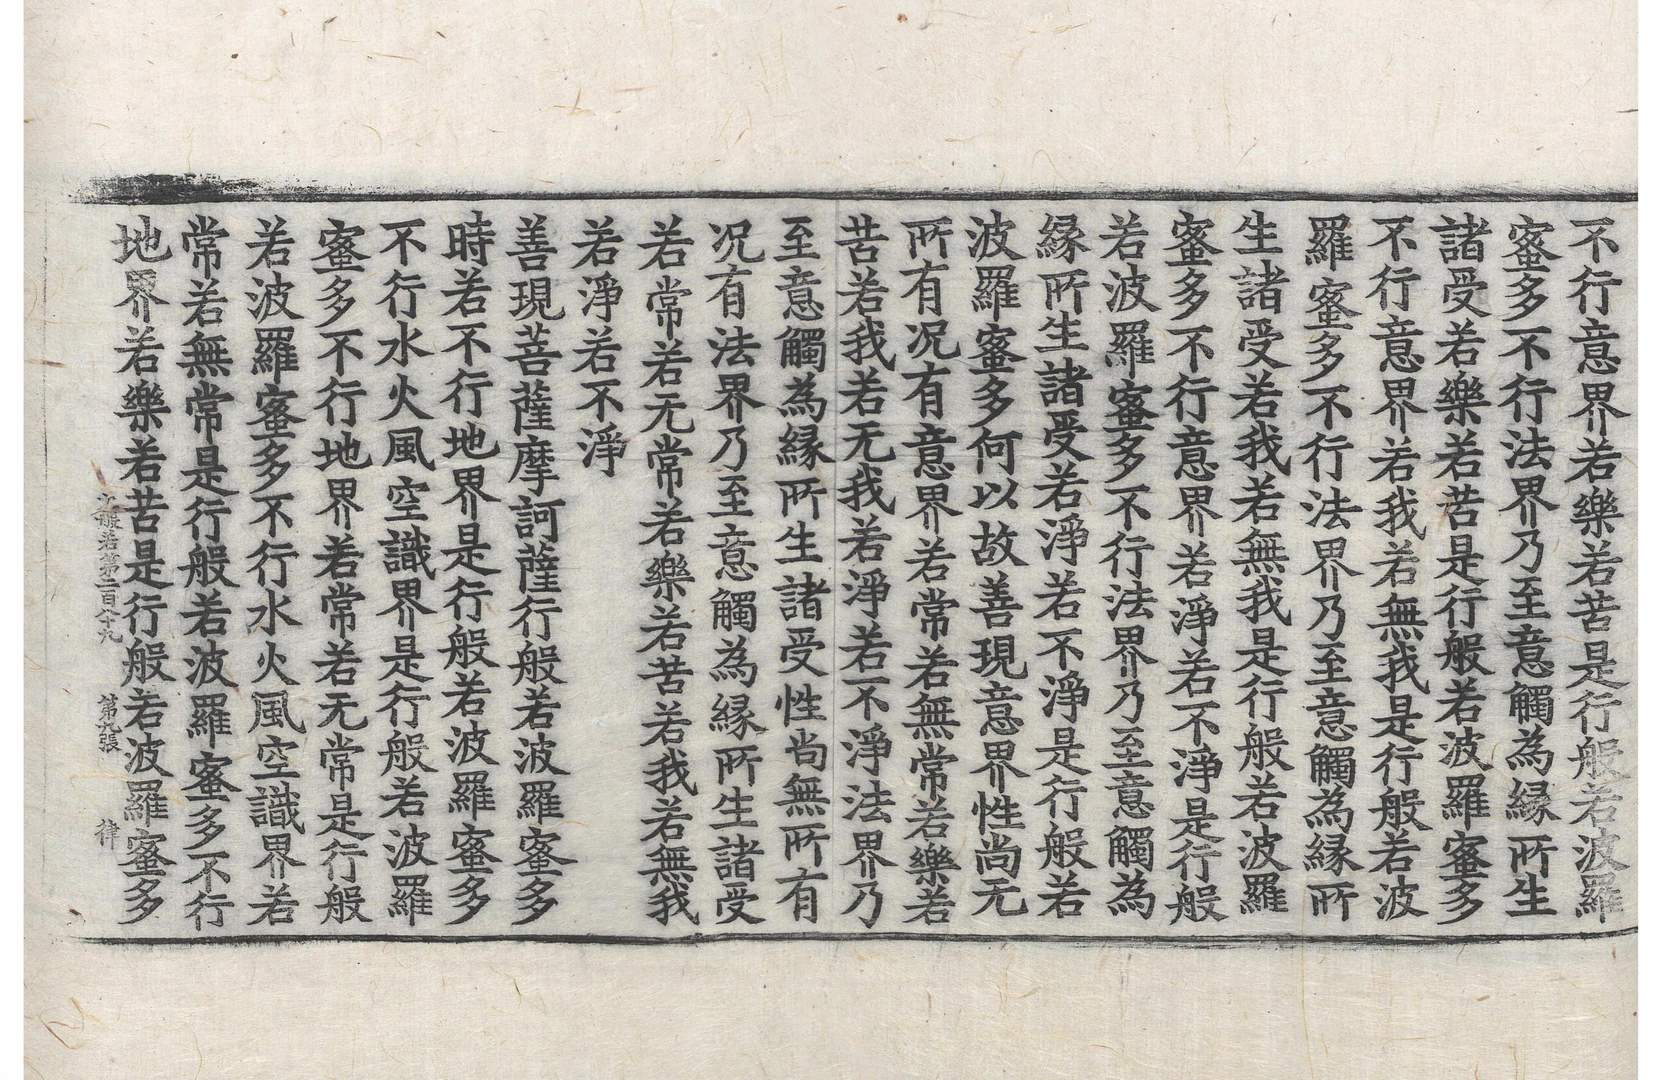 不行意界若樂若苦是行般若波羅
蜜多不行法界乃至意觸為緣所生
諸受若樂若苦是行般若波羅蜜多
不行意界若我若無我是行般若波
羅蜜多不行法界乃至意觸為緣所
生諸受若我若無我是行般若波羅
蜜多不行意界若淨若不淨是行般
若波羅蜜多不行法界乃至意觸為
緣所生諸受若淨若不淨是行般若
波羅蜜多何以故善現意界性尚无
所有况有意界若常若無常若樂若
苦若我若无我若淨若不淨法界乃
至意觸為緣所生諸受性尚無所有
况有法界乃至意觸為緣所生諸受
若常若无常若樂若苦若我若無我
若淨若不淨
善現菩薩摩訶薩行般若波羅蜜多
時若不行地界是行般若波羅蜜多
不行水火風空識界是行般若波羅
蜜多不行地界若常若无常是行般
若波羅蜜多不行水火風空識界若
常若無常是行般若波羅蜜多不行
地界若樂若苦是行般若波羅蜜多
般若第二百八十九 第九張 律